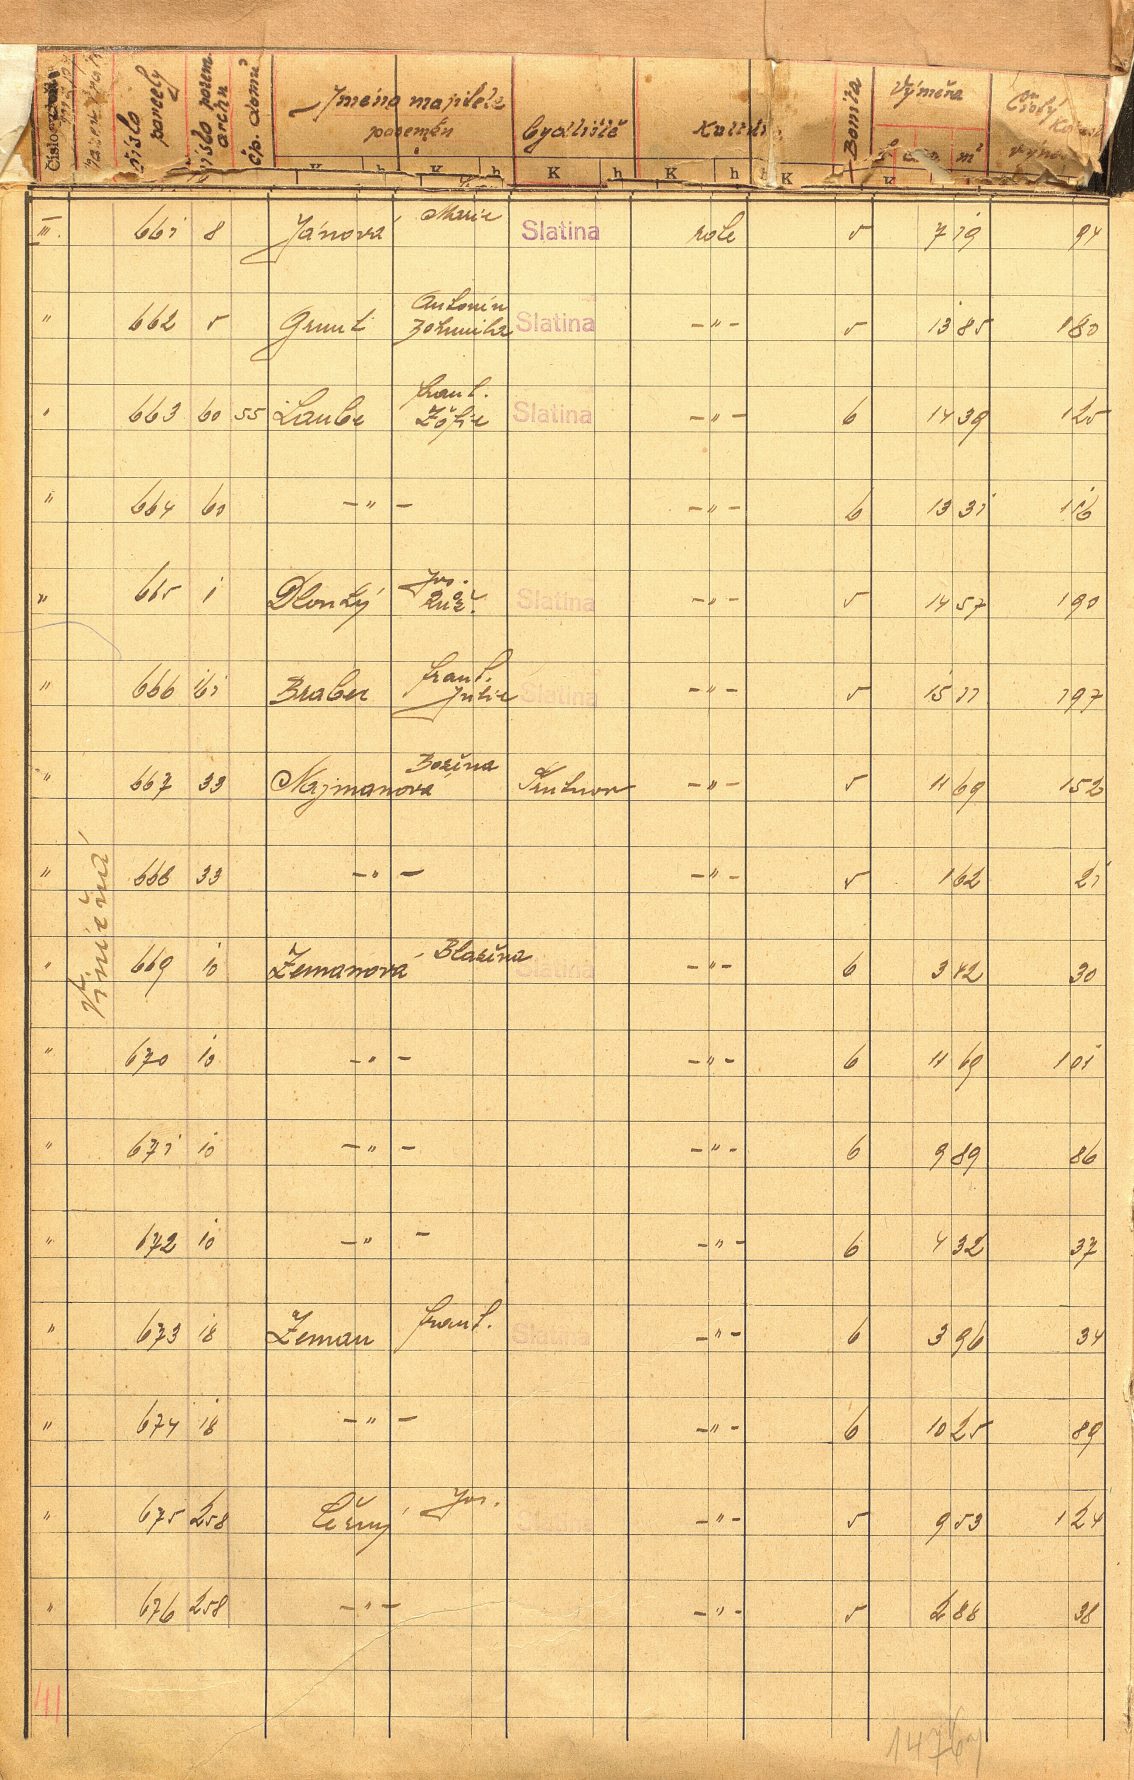 Číslo mapy
Název tratě
číslo parcely
číslo pozem. archu
čp. domu
Jméno majitele pozemku
bydliště
Kult
Bonita
Výměra
m²
Čistý
K h K h K h K h h K K
III. 661 8 Jánová Marie Slatina role 5 719 94
" 662 5 Grunt Antonín Bohumila Slatina -"- 5 1385 180
" 663 60 55 Laube Frant. Žofie Slatina -"- 6 1439 125
" 664 60 -"- -"- 6 1331 116
" 665 1 Dlouhý Jos. Růž. Slatina -"- 5 1457 190
" 666 161 Braber Frant. Julie Slatina -"- 5 1511 197
" 667 33 Najmanová Božena Trutnov -"- 5 1169 152
" 668 33 -"- -"- 5 162 21
Viničná
" 669 10 Zemanová Blažena Slatina -"- 6 342 30
" 670 10 -"- -"- 6 1169 101
" 671 10 -"- -"- 6 989 86
" 672 10 -"- -"- 6 432 37
" 673 18 Zeman Frant. Slatina -"- 6 396 34
" 674 18 -"- -"- 6 1025 89
" 675 258 Černý Jos. Slatina -"- 5 953 124
" 676 258 -"- -"- 5 288 38
41